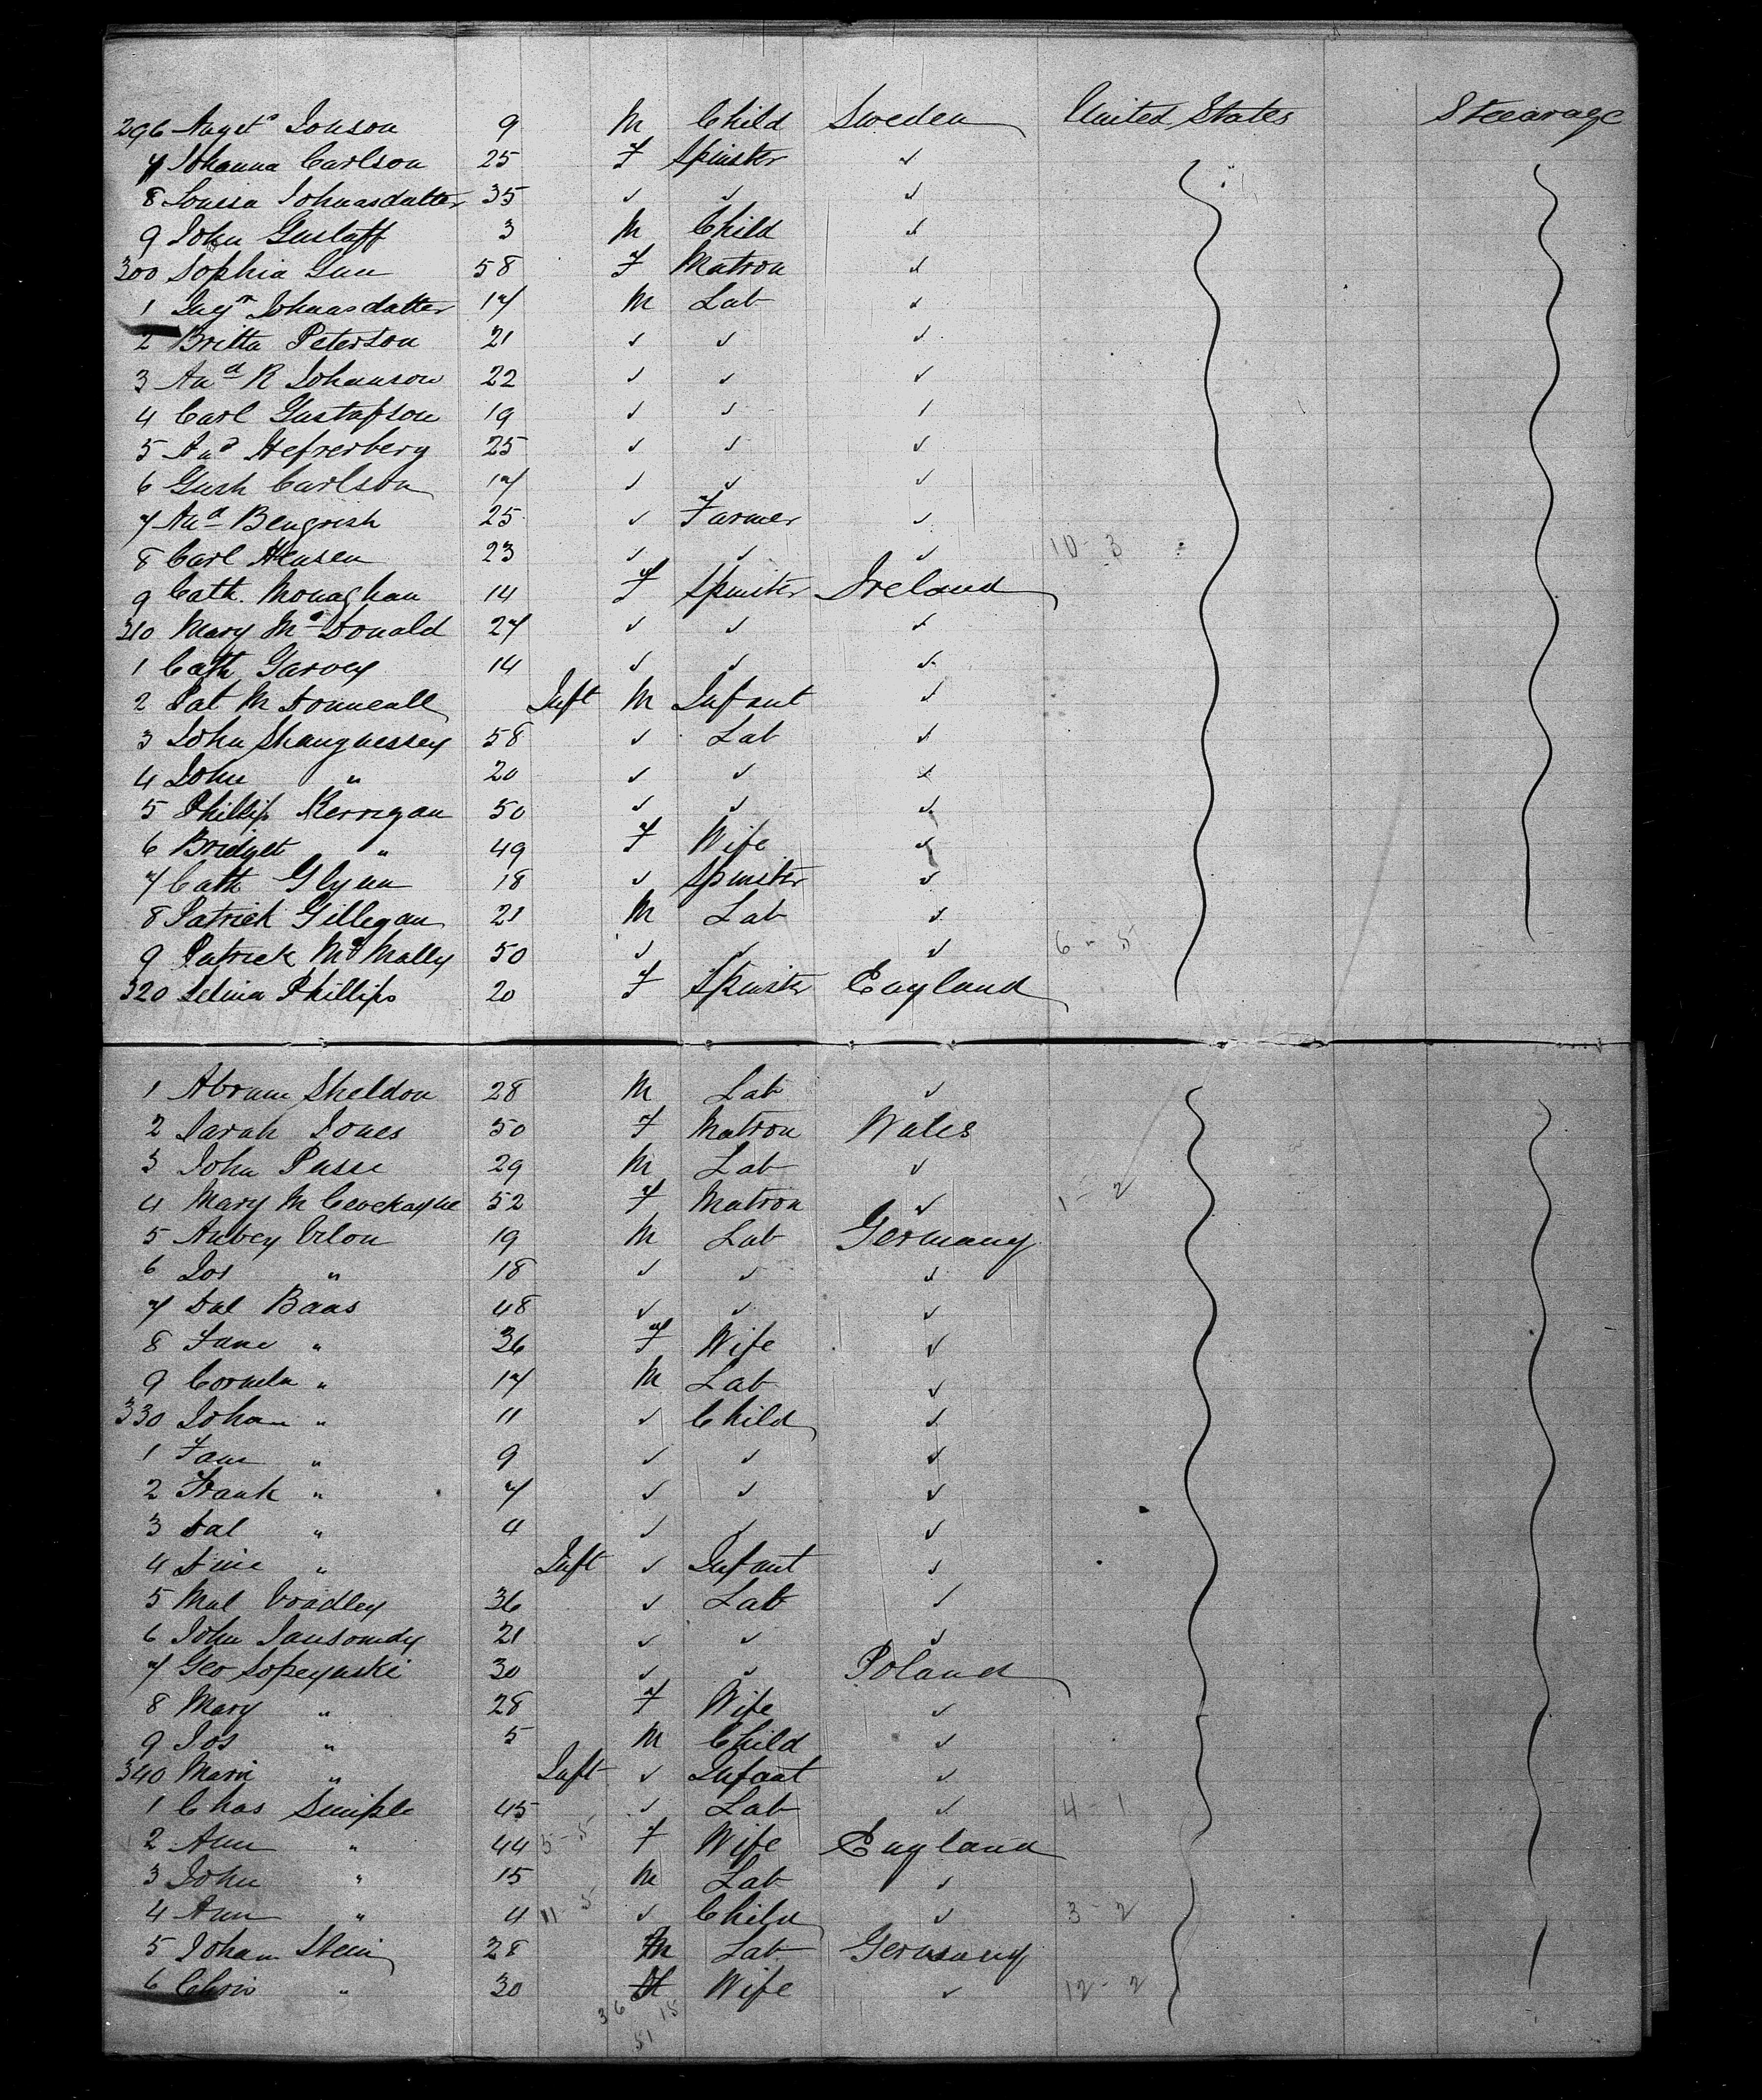 296 August Jonson 9 M Child Sweden United States Steearage
7 Johanna Carlson 25 F Spinster ✓
8 Louisa Johnasdatter 35 ✓ ✓ ✓
9 John Gustaff 3 M Child ✓
300 Sophia Gun 58 F Matron ✓
1 Johnasdatter 17 M Lab ✓
2 Britta Peterson 21 ✓ ✓ ✓
3 And R Johanson 22 ✓ ✓ ✓
4 Carl Gustafson 19 ✓ ✓ ✓
5 And Hefrerberg 25 ✓ ✓ ✓
6 Gush Carlson 17 ✓ ✓ ✓
7 And Bengrish 25 ✓ Farmer ✓
8 Carl Hensen 23 ✓ ✓ ✓ 10-3
9 Cath. Monaghan 14 F Spinster Ireland
310 Mary McDonald 27 ✓ ✓ ✓
1 Cath Garvey 14 ✓ ✓ ✓
2 Pat McDonneall Inft M Infant ✓
3 John Shaugnessey 58 ✓ Lab ✓
4 John " 20 ✓ ✓ ✓
5 Phillip Kerrigan 50 ✓ ✓ ✓
6 Bridget " 49 F Wife ✓
7 Cath Glynn 18 ✓ Spinster ✓
8 Patrick Gillegan 21 M Lab ✓
9 Patrick McMally 50 ✓ ✓ ✓ 6-5
320 Selina Phillips 20 F Spinster England
1 Abram Sheldon 28 M Lab ✓
2 Sarah Jones 50 F Matron Wales
3 John Passe 29 M Lab ✓
4 Mary M 52 F Matron ✓ 1-2
5 Aubey Orlon 19 M Lab Germany
6 Jos " 18 ✓ ✓ ✓
7 Dal Baas 48 ✓ ✓ ✓
8 Jane " 36 F Wife ✓
9 Cornela " 17 M Lab ✓
330 Johan " 11 ✓ Child ✓
1 Jane " 9 ✓ ✓ ✓
2 Frank " 7 ✓ ✓ ✓
3 Dal " 4 ✓ ✓ ✓
4 Dine " Inft ✓ Infant ✓
5 Mal Voadley 36 ✓ Lab ✓
6 John Jansomdy 21 ✓ ✓ ✓
7 Geo Sopeynski 30 ✓ ✓ Poland
8 Mary " 28 F Wife ✓
9 Jos " 5 M Child ✓
340 Mari " Inft ✓ Infant ✓
1 Chas Simple 45 ✓ Lab ✓ 4 1
2 Ann " 44 5-5 F Wife England
3 John " 15 M Lab ✓
4 Ann " 4 11-5 ✓ Child ✓ 3-2
5 Johan Stein 28 M Lab Germany
6 Chris " 30 Wife ✓ 12-2
36 15
51